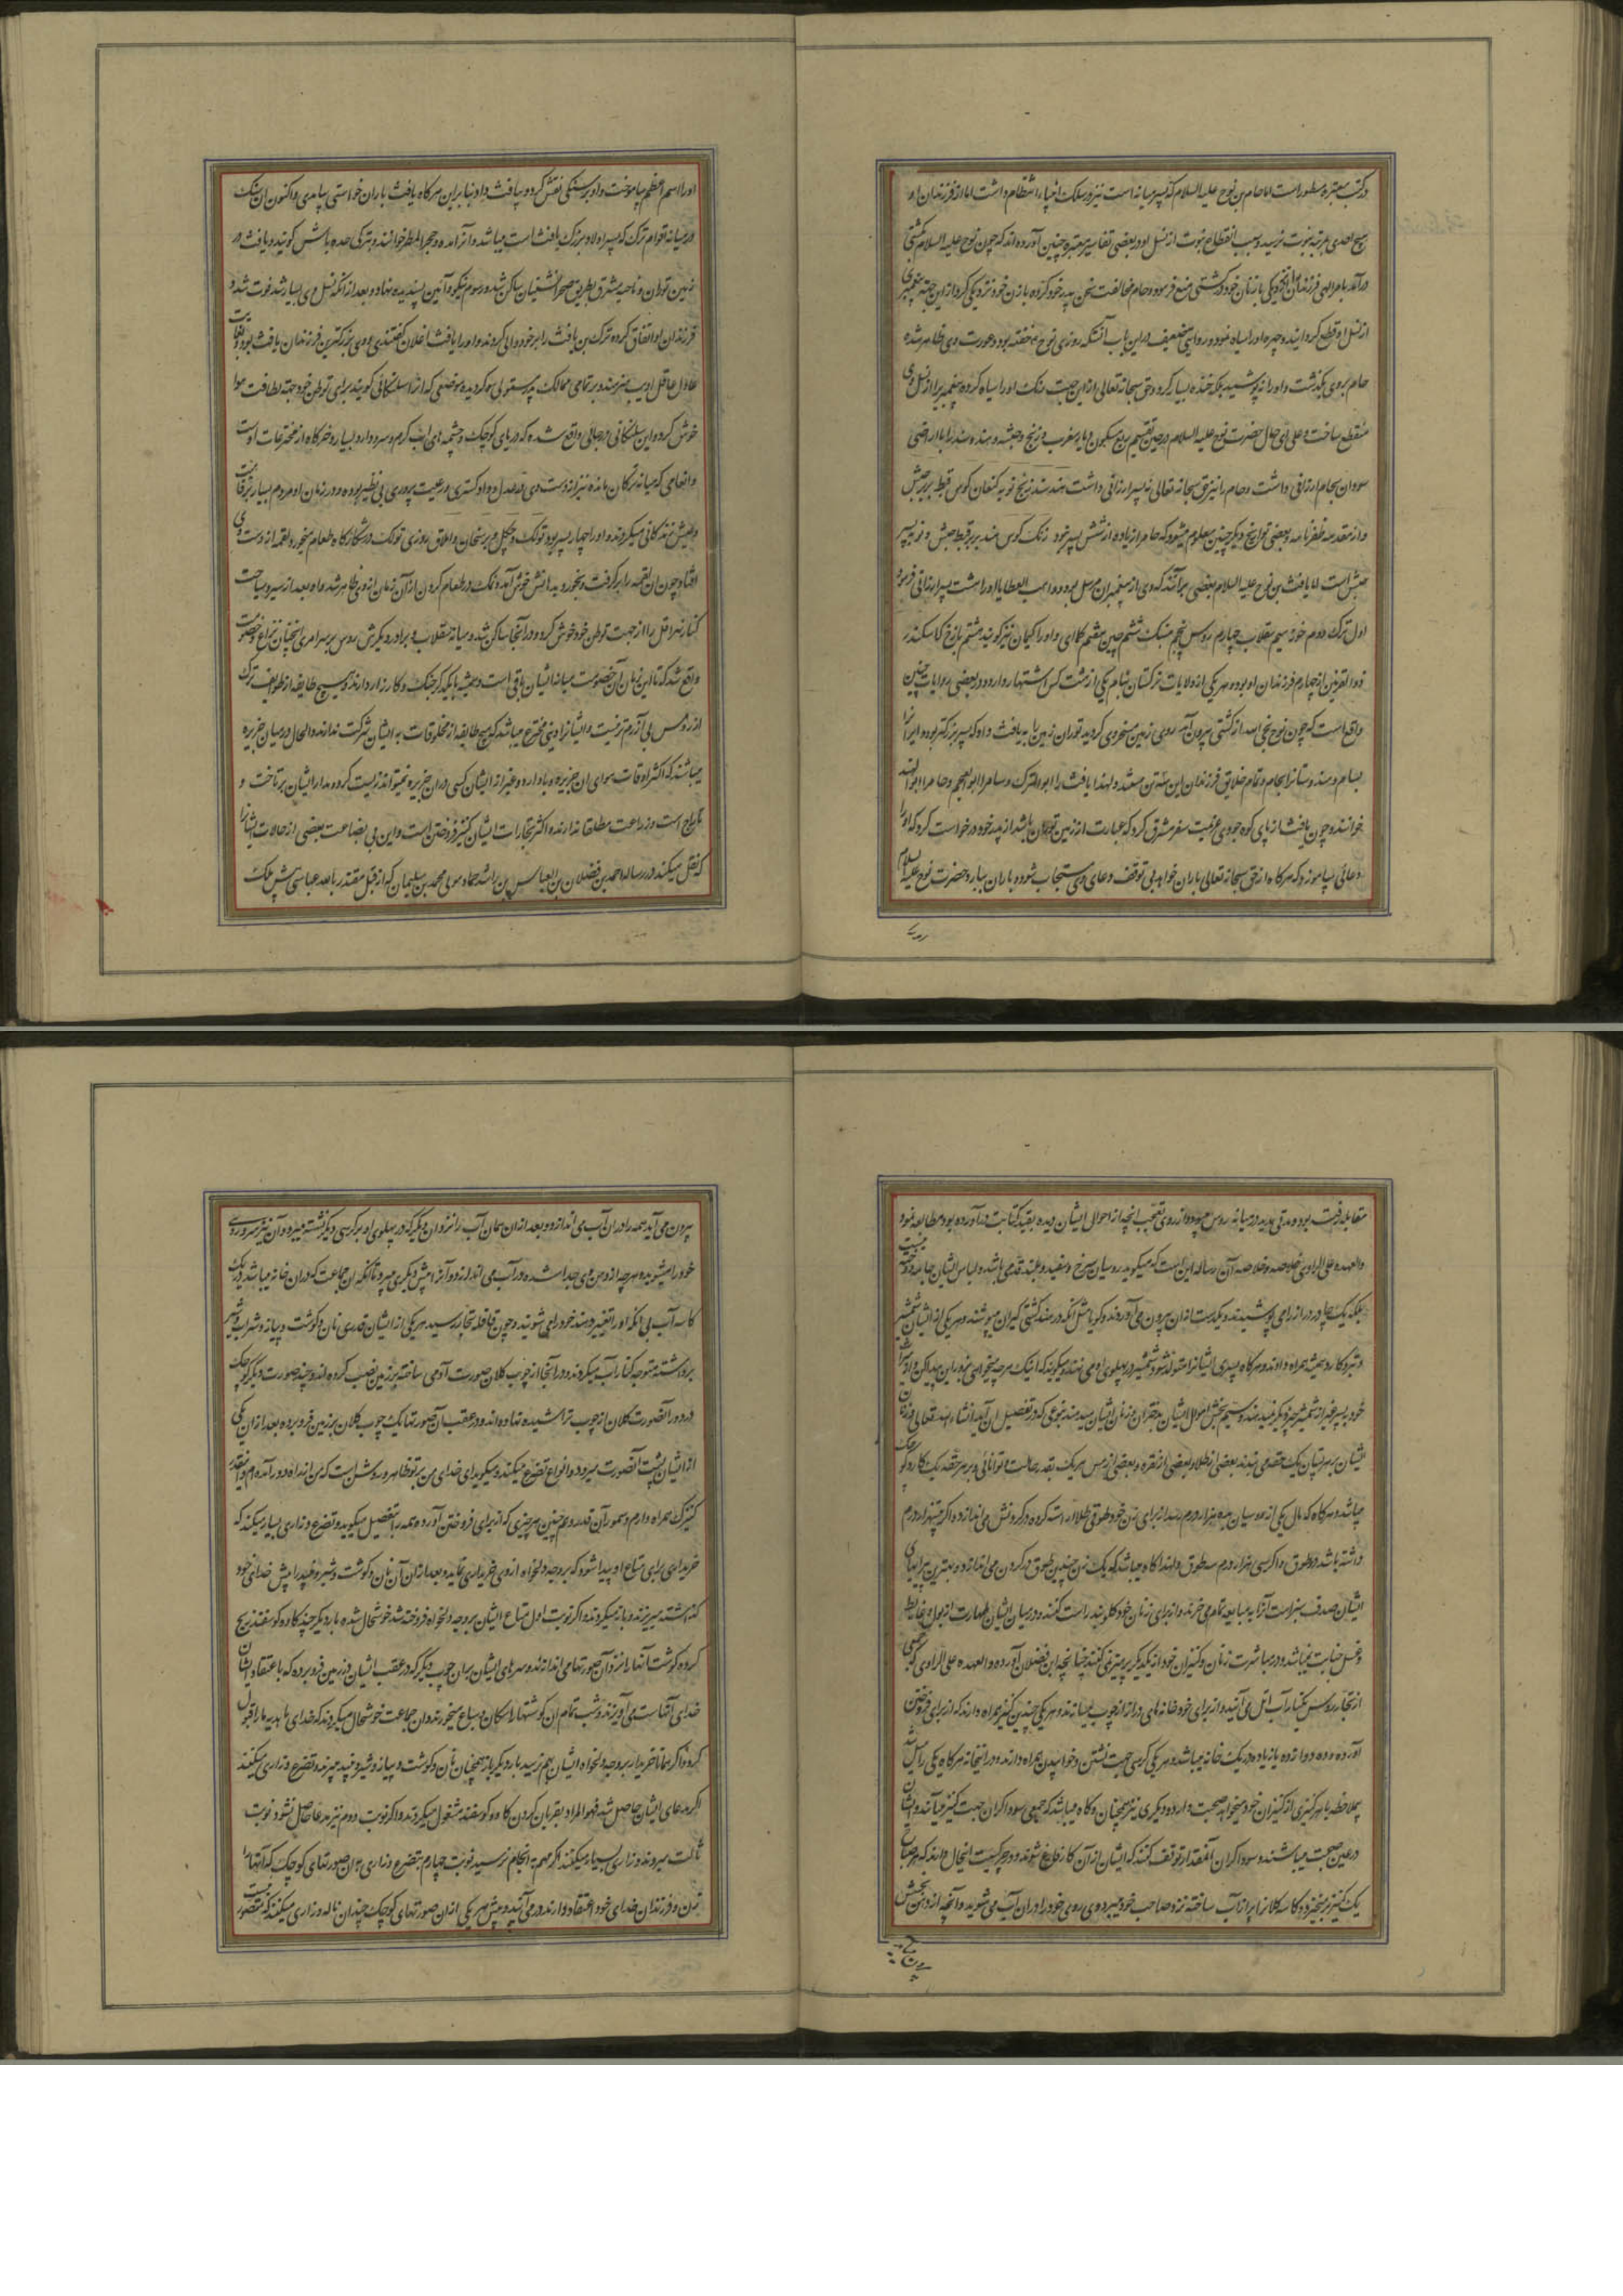 در کتب معتبره مسطور است اما حام بن نوح علیه السلام که پسر میانه است نیز در سلک انبیاء انتظام داشت اما از فرزندان او
هیچ احدی بمرتبه نبوت نرسید و سبب انقطاع نبوت از نسل او در بعضی تفاسیر معتبره چنین آورده اند که چون نوح علیه السلام بکشتی
درآمد بامر الهی فرزندان را از نزدیکی با زنان خود در کشتی منع فرمود و حام مخالفت سخن پدر خود کرده با زن خود نزدیکی کرد از این جهة پیغمبری
از نسل او قطع گردانید و چهره او را سیاه نمود و روایتی ضعیف در این باب آنستکه روزی نوح ع خفته بود و عورت وی ظاهر شده
حام بر وی بگذشت و او را نه پوشید بلکه خنده بسیار کرد و حق سبحانه تعالی از این جهت رنگ او را سیاه کرده پیغمبری از نسل وی
منقطع ساخت و علی ای حال حضرت نوح علیه السلام در حین تقسیم ربع مسکون دیار مغرب و زنج و حبشه و هند و سند را با اراضی
سودان بحام ارزانی داشت و حام را نیز حق سبحانه تعالی نه پسر ارزانی داشت هند سند زنج نوبه کنعان کوس قبط بربر حبش
و از مقدمه ظفرنامه و بعضی تواریخ دیگر چنین معلوم میشود که حام را زیاده از شش پسر نبود زنگ کوس هند بربر قبط حبش و نوبه پسر
حبش است اما یافث بن نوح علیه السلام بعضی برآنند که وی از پیغمبران مرسل بوده و واهب العطایا او را هشت پسر ارزانی فرموده
اول ترک دوم خزر سیم سقلاب چهارم روس پنجم منسک ششم چین هفتم کماری و او را کیمال نیز گویند هشتم بارخ که اسکندر
ذوالقرنین از چهارم فرزندان او بوده و هر یکی از ولایات ترکستان بنام یکی از هشت کس اشتهار دارد و در بعضی روایات چنین
واقع است که چون نوح نجی الله از کشتی بیرون آمد روی زمین مسخر وی گردید توران زمین را به یافث داد که پسر بزرگتر بود و ایران را
بسام و هندوستان را بحام و تمام خلایق فرزندان این سه تن هستند و لهذا یافث را ابو الترک و سام را ابو العجم و حام را ابو الهند
خوانند و چون یافث از پای کوه جودی عزیمت سفر مشرق کرد که عبارت از زمین توران باشد از پدر خود درخواست کرد که او را
دعائی بیاموزد که هر گاه از حق سبحانه تعالی باران خواهد بی توقف دعای وی مستجاب شود و باران ببارد حضرت نوح علیه السلام
او را اسم اعظم بیاموخت و او بر سنگی نقش کرد و بیافث داد و بنا بر این هر گاه یافث باران خواستی بیامدی و اکنون آن سنگ
در میانه اقوام ترک که پسر اولاد بزرگ یافث است میباشد و آنرا جده و حجر المطر خوانند و بترکی جده باش گویند و یافث در
زمین توران و ناحیه مشرق بطریق صحرانشینان ساکن شد و رسوم نیکو و آئین پسندیده نهاد و بعد از آنکه نسل وی بسیار شد فوت شد و
فرزندان او اتفاق کرده ترک بن یافث را بر خود والی کردند و او را یافث اغلان گفتندی و وی بزرگترین فرزندان یافث بود و بغایت
عادل عاقل ادیب هنرمند و بر تمامی ممالک پدر مستولی گردید و موضعی که آنرا سلنکائی گویند برای توطن خود جهة لطافت هوا
خوش کرده و این سلنکائی در جائی واقع شده که دریای کوچک و چشمه های آب گرم و سرد دارد بسیار و خرگاه از مخترعات اوست
و انعامی که میانه ترکان مانده نیز از اوست وی در عدل و داد گستری و رعیت پروری بی نظیر بوده و در زمان او مردم بسیار برفاهیت
و عیش زندگانی میکردند و او را چهار پسر بود توتک و چگل و برسخان و املاق روزی توتک در شکارگاه طعام میخورد لقمه از دست وی
افتاد چون آن لقمه را برگرفت و بخورد بمذاقش خوش آمد و نمک در طعام کردن از آن زمان از وی ظاهر شد و او بعد از سیر و سیاحت
کنار نهر اتل را از جهت توطن خود خوش کرد و در آنجا ساکن شد و میانه سقلاب و برادر دیگرش روس بر سر امری آنچنان نزاع و خصومت
واقع شد که تا این زمان آن خصومت میانه ایشان باقی است و همیشه با یکدیگر جنگ و کارزار دارند و هیچ طایفه از طوایف ترک
از روس بی آزرم تر نیست و ایشانرا دینی مخترع میباشد که هیچ طایفه از مخلوقات به ایشان شرکت ندارند و الحال در میان جزیره
میباشند که اکثر اوقات هوای آن جزیره وبا دارد و غیر از ایشان کسی در آن جزیره نمیتواند زیست کرد و مدار ایشان بر تاخت و
تاراج است و زراعت مطلقا ندارند و اکثر تجارات ایشان کنیز فروختن است و این بی بضاعت بعضی از حالات ایشانرا
که نقل میکند در رساله احمد بن فضلان بن العباس بن راشد حماد مولی محمد بن سلیمان که از قبل مقتدر بالله عباسی پیش ملک
سقلاب رفته بود و مدتی مدید در میانه روس میبود و از روی تعجب آنچه از احوال ایشان دیده بقید کتابت در آورده بود مطالعه نمود
والعهده علی الراوی خلاصه و خلاصه آن رساله این است که میگوید روسیان سرخ و سفید و بلند قد می باشند و لباس ایشان جامه دوخته نیست
بلکه یک چادر دراز را می پوشیدند و یکدست از آن بیرون می آوردند گویا مثل آنکه در هند کشتی گیران میپوشند و هر یکی از ایشان شمشیر
و تبر و کارد همیشه همراه دارند و هر گاه پسری ایشانرا متولد شود شمشیر در پهلوی او می نهند و میگویند که اینک هر چه میخواهی بزور این پیدا کن و از میراث
خود به پسر غیر از شمشیر چیز دیگر نمیدهند و سیم بخش اموال ایشان بدختران و زنان ایشان میرسد بنوعی که در تفصیل آن آید انشاء الله تعالی و زنان
ایشان بر هر پستان یک حقه می بندند بعضی از طلا و بعضی از نقره و بعضی از مس هر یک بقدر حالت و توانائی و بر هر حقه یک کارد کوچک
میباشد و هر گاه که مال یکی از روسیان بده هزار درم رسد از برای زن خود طوقی طلا آراسته کرده در گردنش می اندازد و اگر بیست هزار درم
داشته باشد دو طوق و اگر سی هزار درم سه طوق و لهذا گاه میباشد که یک زن چندین طوق در گردن می اندازد و بهترین پیرایهای
ایشان صدف سبز است آنرا به مبایعه تمام می خرند و از برای زنان خود گلوبند راست کنند و در میان ایشان طهارت از بول و غایط
و غسل جنابت نمیباشد و در مباشرت زنان و کنیزان خود از یکدیگر پرهیز نمیکنند چنانچه ابن فضلان آورده والعهده علی الراوی که جمعی
از تجار روس بکنار آب اتل می آیند و از برای خود خانه های دراز از چوب میسازند و هر یکی چندین کنیز همراه دارند که از برای فروختن
آورده و ده دوازده یا زیاده در یک خانه میباشند و هر یکی کرسی جهت نشستن و خوابیدن همراه دارند و در آنجا نه هر گاه یکی را میل شد
بملاحظه با هر کنیزی از کنیزان خود میخواهد صحبت دارد و دیگری نیز همچنان و گاه میباشد که جمعی سوداگران جهت کنیز میآیند و ایشان
در عین صحبت میباشند و سوداگران آنقدر توقف کنند که ایشان از آن کار فارغ شوند و دیگر کیفیت اینحال دارند که هر صباح
یک کنیز بر میخیزد و کاسه کلانرا پر از آب ساخته نزد صاحب خود میبرد وی روی خود را در آن آب می شوید و آنچه از دهن و بینیش
بیرون می آید همه را در آن آب می اندازد و بعد از آن همان آب را نزد آن دیگر که در پهلوی او بر کرسی دیگر نشسته میبرد و آن نیز سر و روی
خود را میشوید و هر چه از دهن وی جدا شده در آب می اندازد و آنرا پیش دیگری میبرد تا آنکه آن جماعت که در آن خانه میباشد در یک
کاسه آب بی آنکه او را تغییر دهند خود را می شویند و چون قافله تجار رسید هر یکی از ایشان قدری نان و گوشت و پیاز و شراب و شیر
برداشته متوجه کنار آب میگردند و در آنجا از چوب کلان صورت آدمی ساخته بر زمین نصب کرده اند و چند صورت دیگر کوچک
در دور آنصورت کلان از چوب تراشیده نهاده اند و در عقب آن صورتها یک چوب کلان بر زمین فرو برده بعد از آن یکی
از ایشان پشت آنصورت میرود و انواع تضرع میکند و میگوید ای خدای من بر تو ظاهر و روشن است که من از راه دور آمده ام و آنقدر
کنیزک همراه دارم و سمور آن قدر و همچنین هر چیزی که از برای فروختن آورده همه را بتفصیل میگوید و تضرع و زاری بسیار میکند که
خریداری برای متاع او پیدا شود که بر وجه دلخواه از وی خریداری نماید و بعد از آن آن نان و گوشت و شیر و غیره را پیش خدای خود
گذاشته بر میزند و باز میگردند و اگر نوبت اول متاع ایشان بر وجه دلخواه فروخته شد خوشحال شده بار دیگر چند گاو و گوسفند ذبح
کرده گوشت آنها را نزد آن صورتها می اندازند و سرهای ایشان بر آن چوب دیگر که در عقب ایشان در زمین فرو برده که با عتقاد ایشان
خدای آنهاست می آویزند و شب تمام آن گوشتها را سگان و سباع میخورند و آن جماعت خوشحال میگردند که خدای ما هدیه ما را قبول
کرد و اگر متاع آنها خریدار بر وجه دلخواه ایشان بهم نرسید بار دیگر باز همچنان نان و گوشت و پیاز و شیر و غیره میبرند و تضرع و زاری میکنند
اگر مدعای ایشان حاصل شد فهو المراد بقربان کردن گاو و گوسفند مشغول میگردند و اگر نوبت دوم نیز مدعا حاصل نشود نوبت
ثالث میروند و زاری بسیار میکنند اگر مهم به انجام نرسید نوبت چهارم بتضرع و زاری به آن صورتهای کوچک که آنها را
زن و فرزندان خدای خود اعتقاد دارند در می آیند و پیش هر یکی از آن صورتهای کوچک چندان ناله و زاری میکنند که متصور نیست